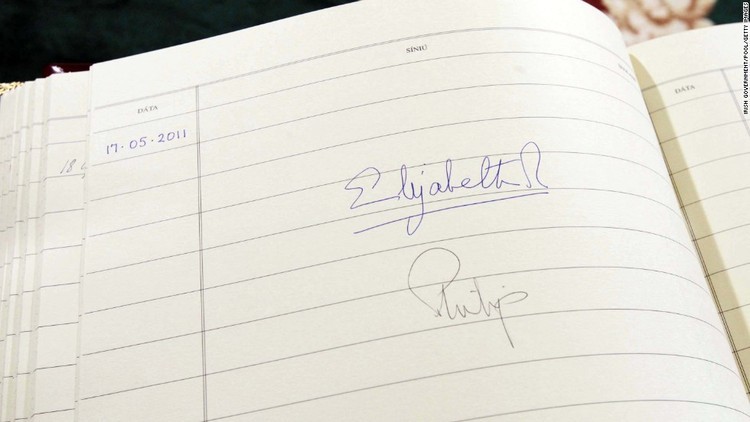 SÍNIÚ
DÁTA
DÁTA
17·05·2011
18
Elizabeth R
Philip
IRISH GOVERNMENT/POOL/GETTY IMAGES